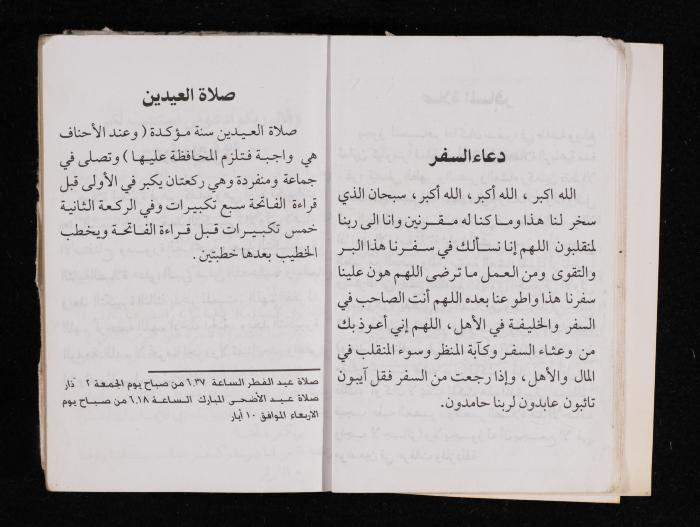 دعاء السفر
الله اكبر ، الله أكبر، الله أكبر، سبحان الذي
سخر لنا هذا وماكنا له مقرنين وانا الى ربنا
لمنقلبون اللهم إنا نسألك في سفرنا هذا البر
والتقوى ومن العمل ما ترضى اللهم هون علينا
سفرنا هذا واطو عنا بعده اللهم أنت الصاحب في
السفر والخليفة في الأهل، اللهم إني أعوذ بك
من وعثاء السفر وكآبة المنظر وسوء المنقلب في
المال والأهل، وإذا رجعت من السفر فقل آيبون
تائبون عابدون لربنا حامدون.
صلاة العيدين
صلاة العيدين سنة مؤكدة ( وعند الأحناف
هي واجبة فتلزم المحافظة عليها ) وتصلى في
جماعة ومنفردة وهي ركعتان يكبر في الأولى قبل
قراءة الفاتحة سبع تكبيرات وفي الركعة الثانية
خمس تكبيرات قبل قراءة الفاتحة ويخطب
الخطيب بعدها خطبتين .
صلاة عيد الفطر الساعة ٦،٣٧ من صباح يوم الجمعة ٢ ذار
صلاة عيد الأضحى المبارك الساعة ٦،١٨ من صباح يوم
الاربعاء الموافق ١٠ أيار